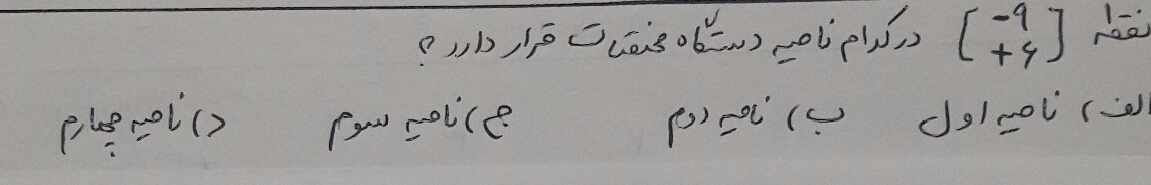 نقطهٔ [-۹ +۶] در کدام ناحیه دستگاه مختصات قرار دارد؟
الف) ناحیه اول ب) ناحیه دوم ج) ناحیه سوم د) ناحیه چهارم